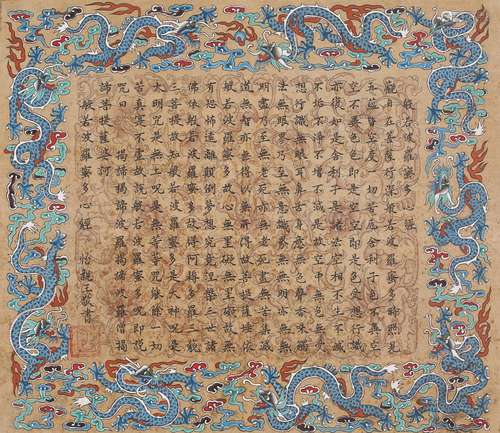 般若波羅蜜多心經
觀自在菩薩行深般若波羅蜜多時照見
五蘊皆空度一切苦厄舍利子色不異空
空不異色色即是空空即是色受想行識
亦復如是舍利子是諸法空相不生不滅
不垢不淨不增不減是故空中無色無受
想行識無眼耳鼻舌身意無色聲香味觸
法無眼界乃至無意識界無無明亦無無
明盡乃至無老死亦無老死盡無苦集滅
道無智亦無得以無所得故菩提薩埵依
般若波羅蜜多故心無罣礙無罣礙故無
有恐怖遠離顛倒夢想究竟涅槃三世諸
佛依般若波羅蜜多故得阿耨多羅三藐
三菩提故知般若波羅蜜多是大神咒是
大明咒是無上咒是無等等咒能除一切
苦真實不虛故說般若波羅蜜多咒即說
咒曰 揭諦揭諦波羅揭諦波羅僧揭
諦菩提薩婆訶
般若波羅蜜多心經 怡親王敬書